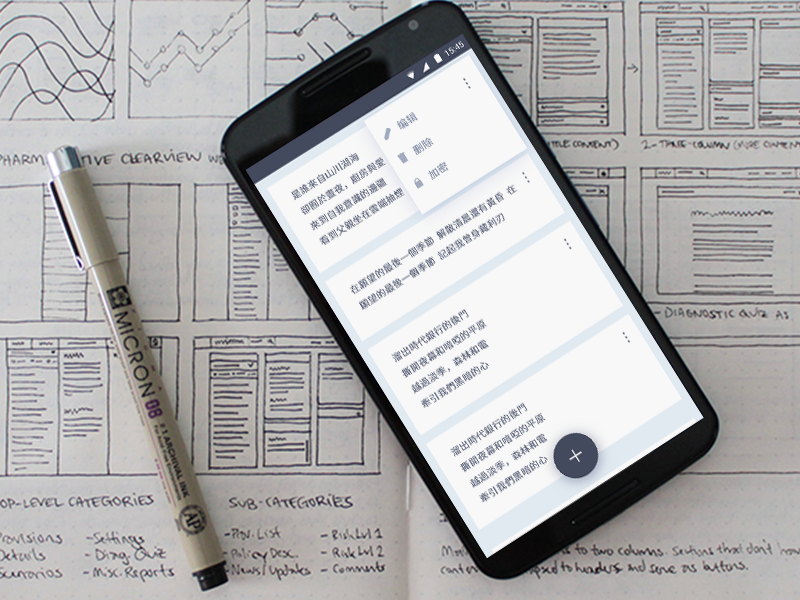 15:45
編輯
刪除
加密
是誰來自山川湖海
卻囿於晝夜，廚房與愛
來到自我意識的邊疆
看到父親坐在雲端抽煙
在願望的最後一個季節 解散清晨還有黃昏 在
願望的最後一個季節 記起我曾身藏利刃
溜出時代銀行的後門
撕開夜幕和喑啞的平原
越過淡季，森林和電
牽引我們黑暗的心
溜出時代銀行的後門
撕開夜幕和喑啞的平原
越過淡季，森林和電
牽引我們黑暗的心
MICRON 08
#1 ARCHIVAL INK
AP
CLEARVIEW
2- THREE-COLUMN (MORE CONTENT)
TITLE CONTENT)
- DIAGNOSTIC QUIZ AS
TOP-LEVEL CATEGORIES
SUB-CATEGORIES
Provisions
- Settings
- Prov. List
- Risk Lvl 1
Details
- Diag. Quiz
- Policy Desc.
- Risk Lvl 2
Scenarios
- Misc. Reports
- News/Updates
- Comments
to two columns. Sections that don't have
to headers and serve as buttons.